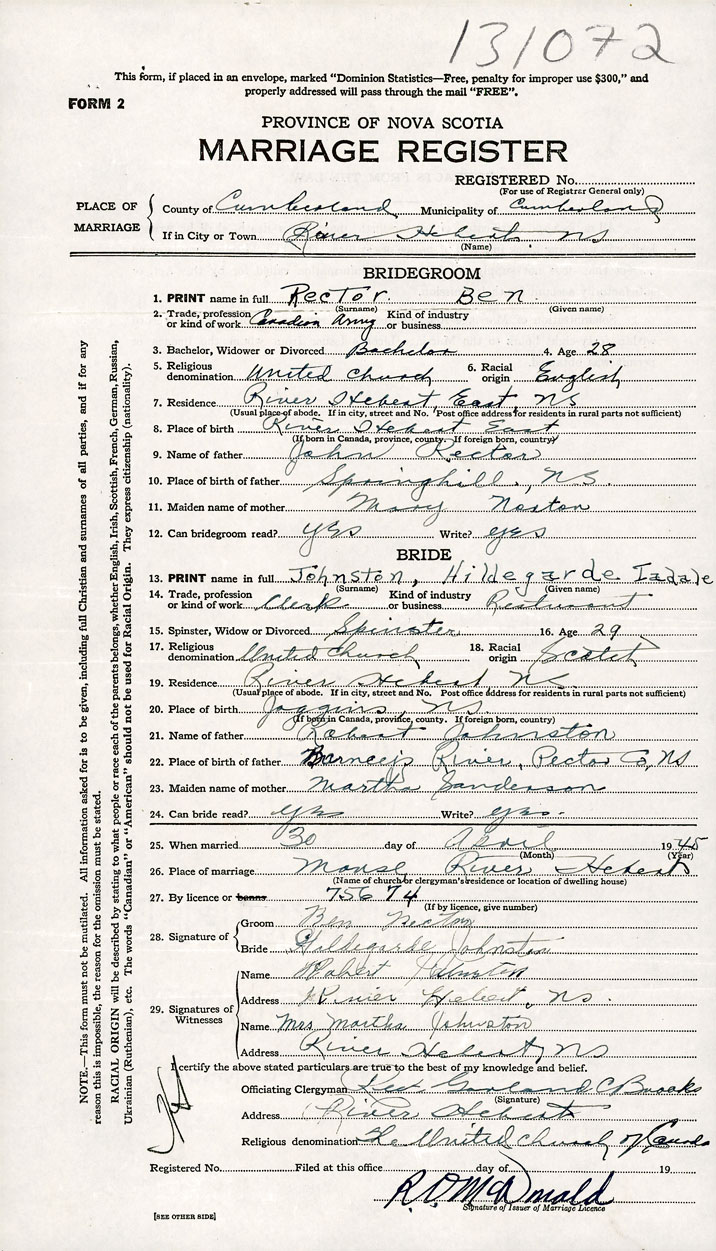 131072
This form, if placed in an envelope, marked "Dominion Statistics—Free, penalty for improper use $300," and
properly addressed will pass through the mail "FREE".
FORM 2
PROVINCE OF NOVA SCOTIA
MARRIAGE REGISTER
REGISTERED No.
(For use of Registrar General only)
PLACE OF MARRIAGE
County of Cumberland Municipality of Cumberland
If in City or Town River Hebert NS
(Name)
BRIDEGROOM
1. PRINT name in full Rector Ben
(Surname) (Given name)
2. Trade, profession or kind of work Canadian Army Kind of industry or business
3. Bachelor, Widower or Divorced Bachelor 4. Age 28
5. Religious denomination United Church 6. Racial origin English
7. Residence River Hebert East, NS
(Usual place of abode. If in city, street and No. Post office address for residents in rural parts not sufficient)
8. Place of birth River Hebert East
(If born in Canada, province, county. If foreign born, country)
9. Name of father John Rector
10. Place of birth of father Springhill, NS.
11. Maiden name of mother Mary Norton
12. Can bridegroom read? yes Write? yes
BRIDE
13. PRINT name in full Johnston, Hildegarde Iadale
(Surname) (Given name)
14. Trade, profession or kind of work Clerk Kind of industry or business Resturant
15. Spinster, Widow or Divorced Spinster 16. Age 29
17. Religious denomination United Church 18. Racial origin Scotch
19. Residence River Hebert NS.
(Usual place of abode. If in city, street and No. Post office address for residents in rural parts not sufficient)
20. Place of birth Joggins, NS.
(If born in Canada, province, county. If foreign born, country)
21. Name of father Robert Johnston
22. Place of birth of father Barneys River, Pector Co, NS
23. Maiden name of mother Martha Sanderson
24. Can bride read? yes Write? yes.
25. When married 30 day of April 1945
(Month) (Year)
26. Place of marriage Manse River Hebert
(Name of church or clergyman's residence or location of dwelling house)
27. By licence or banns 75674
(If by licence, give number)
28. Signature of
Groom Ben Rector
Bride Hildegarde Johnston
29. Signatures of Witnesses
Name Robert Johnston
Address River Hebert, NS.
Name Mrs Martha Johnston
Address River Hebert, NS
I certify the above stated particulars are true to the best of my knowledge and belief.
Officiating Clergyman Rev Garland C Brooks
(Signature)
Address River Hebert
Religious denomination The United Church of Canada
Registered No. Filed at this office day of 19
R. D. McDonald
Signature of Issuer of Marriage Licence
[SEE OTHER SIDE]
NOTE.—This form must not be mutilated. All information asked for is to be given, including full Christian and surnames of all parties, and if for any
reason this is impossible, the reason for the omission must be stated.
RACIAL ORIGIN will be described by stating to what people or race each of the parents belongs, whether English, Irish, Scottish, French, German, Russian,
Ukrainian (Ruthenian), etc. The words "Canadian" or "American" should not be used for Racial Origin. They express citizenship (nationality).